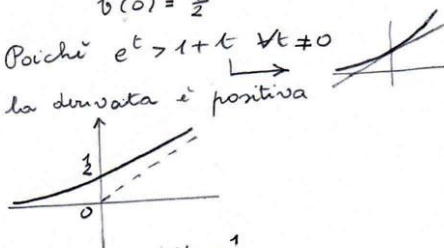 v(0) = 1/2
Poichè e^t > 1 + t ∀t ≠ 0
la derivata è positiva
1/2
0
1